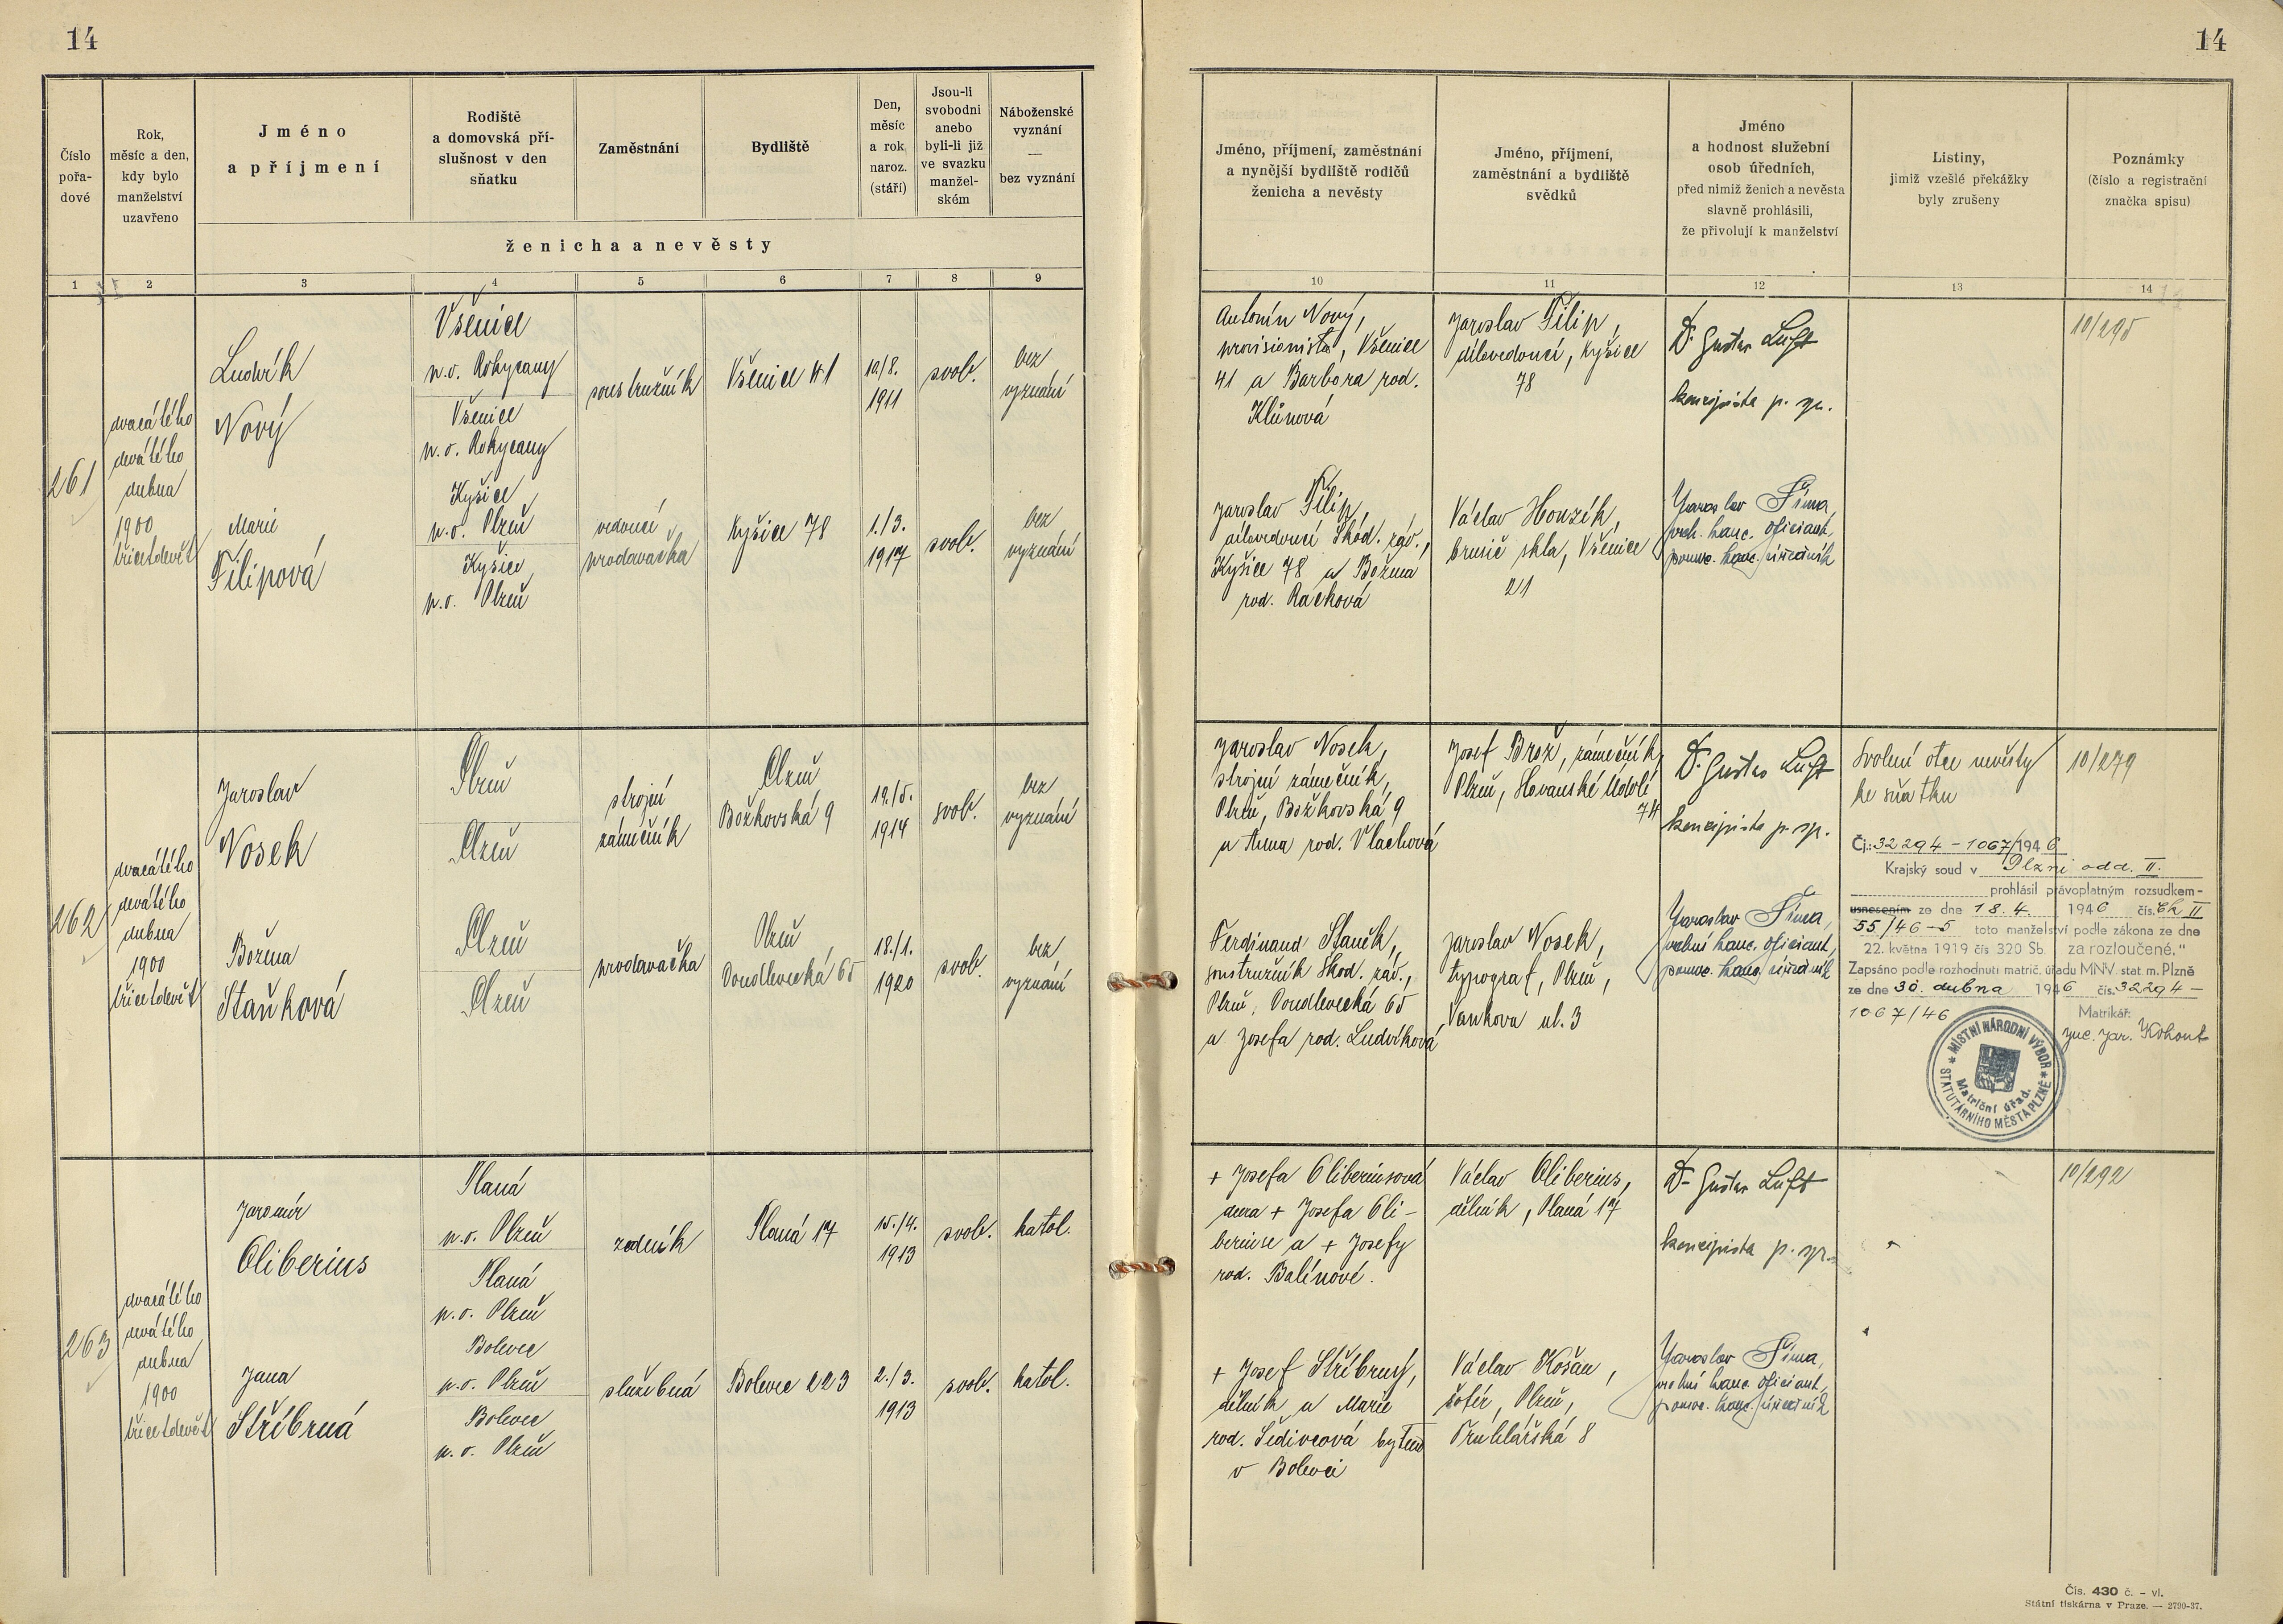 14
14
Číslo
pořa-
dové
Rok,
měsíc a den,
kdy bylo
manželství
uzavřeno
Jméno
a příjmení
Rodiště
a domovská pří-
slušnost v den
sňatku
Zaměstnání
Bydliště
Den,
měsíc
a rok
naroz.
(stáří)
Jsou-li
svobodni
anebo
byli-li již
ve svazku
manžel-
ském
Náboženské
vyznání
—
bez vyznání
ženicha a nevěsty
Jméno, příjmení, zaměstnání
a nynější bydliště rodičů
ženicha a nevěsty
Jméno, příjmení,
zaměstnání a bydliště
svědků
Jméno
a hodnost služební
osob úředních,
před nimiž ženich a nevěsta
slavně prohlásili,
že přivolují k manželství
Listiny,
jimiž vzešlé překážky
byly zrušeny
Poznámky
(číslo a registrační
značka spisu)
1 2 3 4 5 6 7 8 9
10 11 12 13 14
261
dvacátého
devátého
dubna
1900
třicetdevět
Ludvík
Nový
Všenice
p.o. Rokycany
Všenice
p.o. Rokycany
soustružník
Všenice 41
10./8.
1911
svob.
bez
vyznání
Marie
Filipová
Kyšice
p.o. Plzeň
Kyšice
p.o. Plzeň
vedoucí
prodavačka
Kyšice 78
1./3.
1917
svob.
bez
vyznání
Antonín Nový,
provisionista, Všenice
41 a Barbora rod.
Klůnová
Jaroslav Filip,
dílovedoucí, Kyšice
78
Dr Gustav Luft
koncipista p. sp.
10/295
Jaroslav Filip,
dílovedoucí Škod. záv.,
Kyšice 78 a Božena
rod. Racková
Václav Houzík,
brusič skla, Všenice
21
Jaroslav Šíma,
kanc. oficiant,
pomoc. kanc. úředník
262
dvacátého
devátého
dubna
1900
třicetdevět
Jaroslav
Nosek
Plzeň
Plzeň
strojní
zámečník
Plzeň
Božkovská 9
19./5.
1914
svob.
bez
vyznání
Božena
Staňková
Plzeň
Plzeň
prodavačka
Plzeň
Doudlevecká 65
18./1.
1920
svob.
bez
vyznání
Jaroslav Nosek,
strojní zámečník,
Plzeň, Božkovská 9
a Anna rod. Vlachová
Josef Brož, zámečník
Plzeň, Slovanské Údolí
74
Dr Gustav Luft
koncipista p. sp.
Svolení otce nevěsty
ke sňatku
10/279
Ferdinand Staněk,
soustružník Škod. záv.,
Plzeň, Doudlevecká 65
a Josefa rod. Ludvíková
Jaroslav Nosek,
typograf, Plzeň,
Vaňkova ul. 3
Jaroslav Šíma,
kanc. oficiant,
pomoc. kanc. úředník
Čj.: 32294-1067/1946
Krajský soud v Plzni odd. II.
prohlásil právoplatným rozsudkem-
usnesením ze dne 18.4. 1946 čís. Ck II
55/46-5 toto manželství podle zákona ze dne
22. května 1919 čís 320 Sb. za rozloučené."
Zapsáno podle rozhodnutí matrič. úřadu MNV. stat. m. Plzně
ze dne 30. dubna 1946 čís. 32294-
1067/46
Matrikář:
Jar. Kohout
MÍSTNÍ NÁRODNÍ VÝBOR
STATUTÁRNÍHO MĚSTA PLZNĚ
Matriční úřad.
263
dvacátého
devátého
dubna
1900
třicetdevět
Jaromír
Oliberius
Planá
p.o. Plzeň
Planá
p.o. Plzeň
zedník
Planá 17
15./4.
1913
svob.
katol.
Jana
Stříbrná
Bolevec
p.o. Plzeň
Bolevec
p.o. Plzeň
služebná
Bolevec 223
2./3.
1913
svob.
katol.
+ Josefa Oliberiusová
dcera + Josefa Oli-
beriuse a + Josefy
rod. Balínové.
Václav Oliberius,
dělník, Planá 17
Dr Gustav Luft
koncipista p. sp.
10/292
+ Josef Stříbrný,
dělník a Marie
rod. Šedivcová bytem
v Bolevci
Václav Košan,
šofér, Plzeň,
Truhlářská 8
Jaroslav Šíma,
kanc. oficiant,
pomoc. kanc. úředník
Čís. 430 č. – vl.
Státní tiskárna v Praze. — 2790-37.